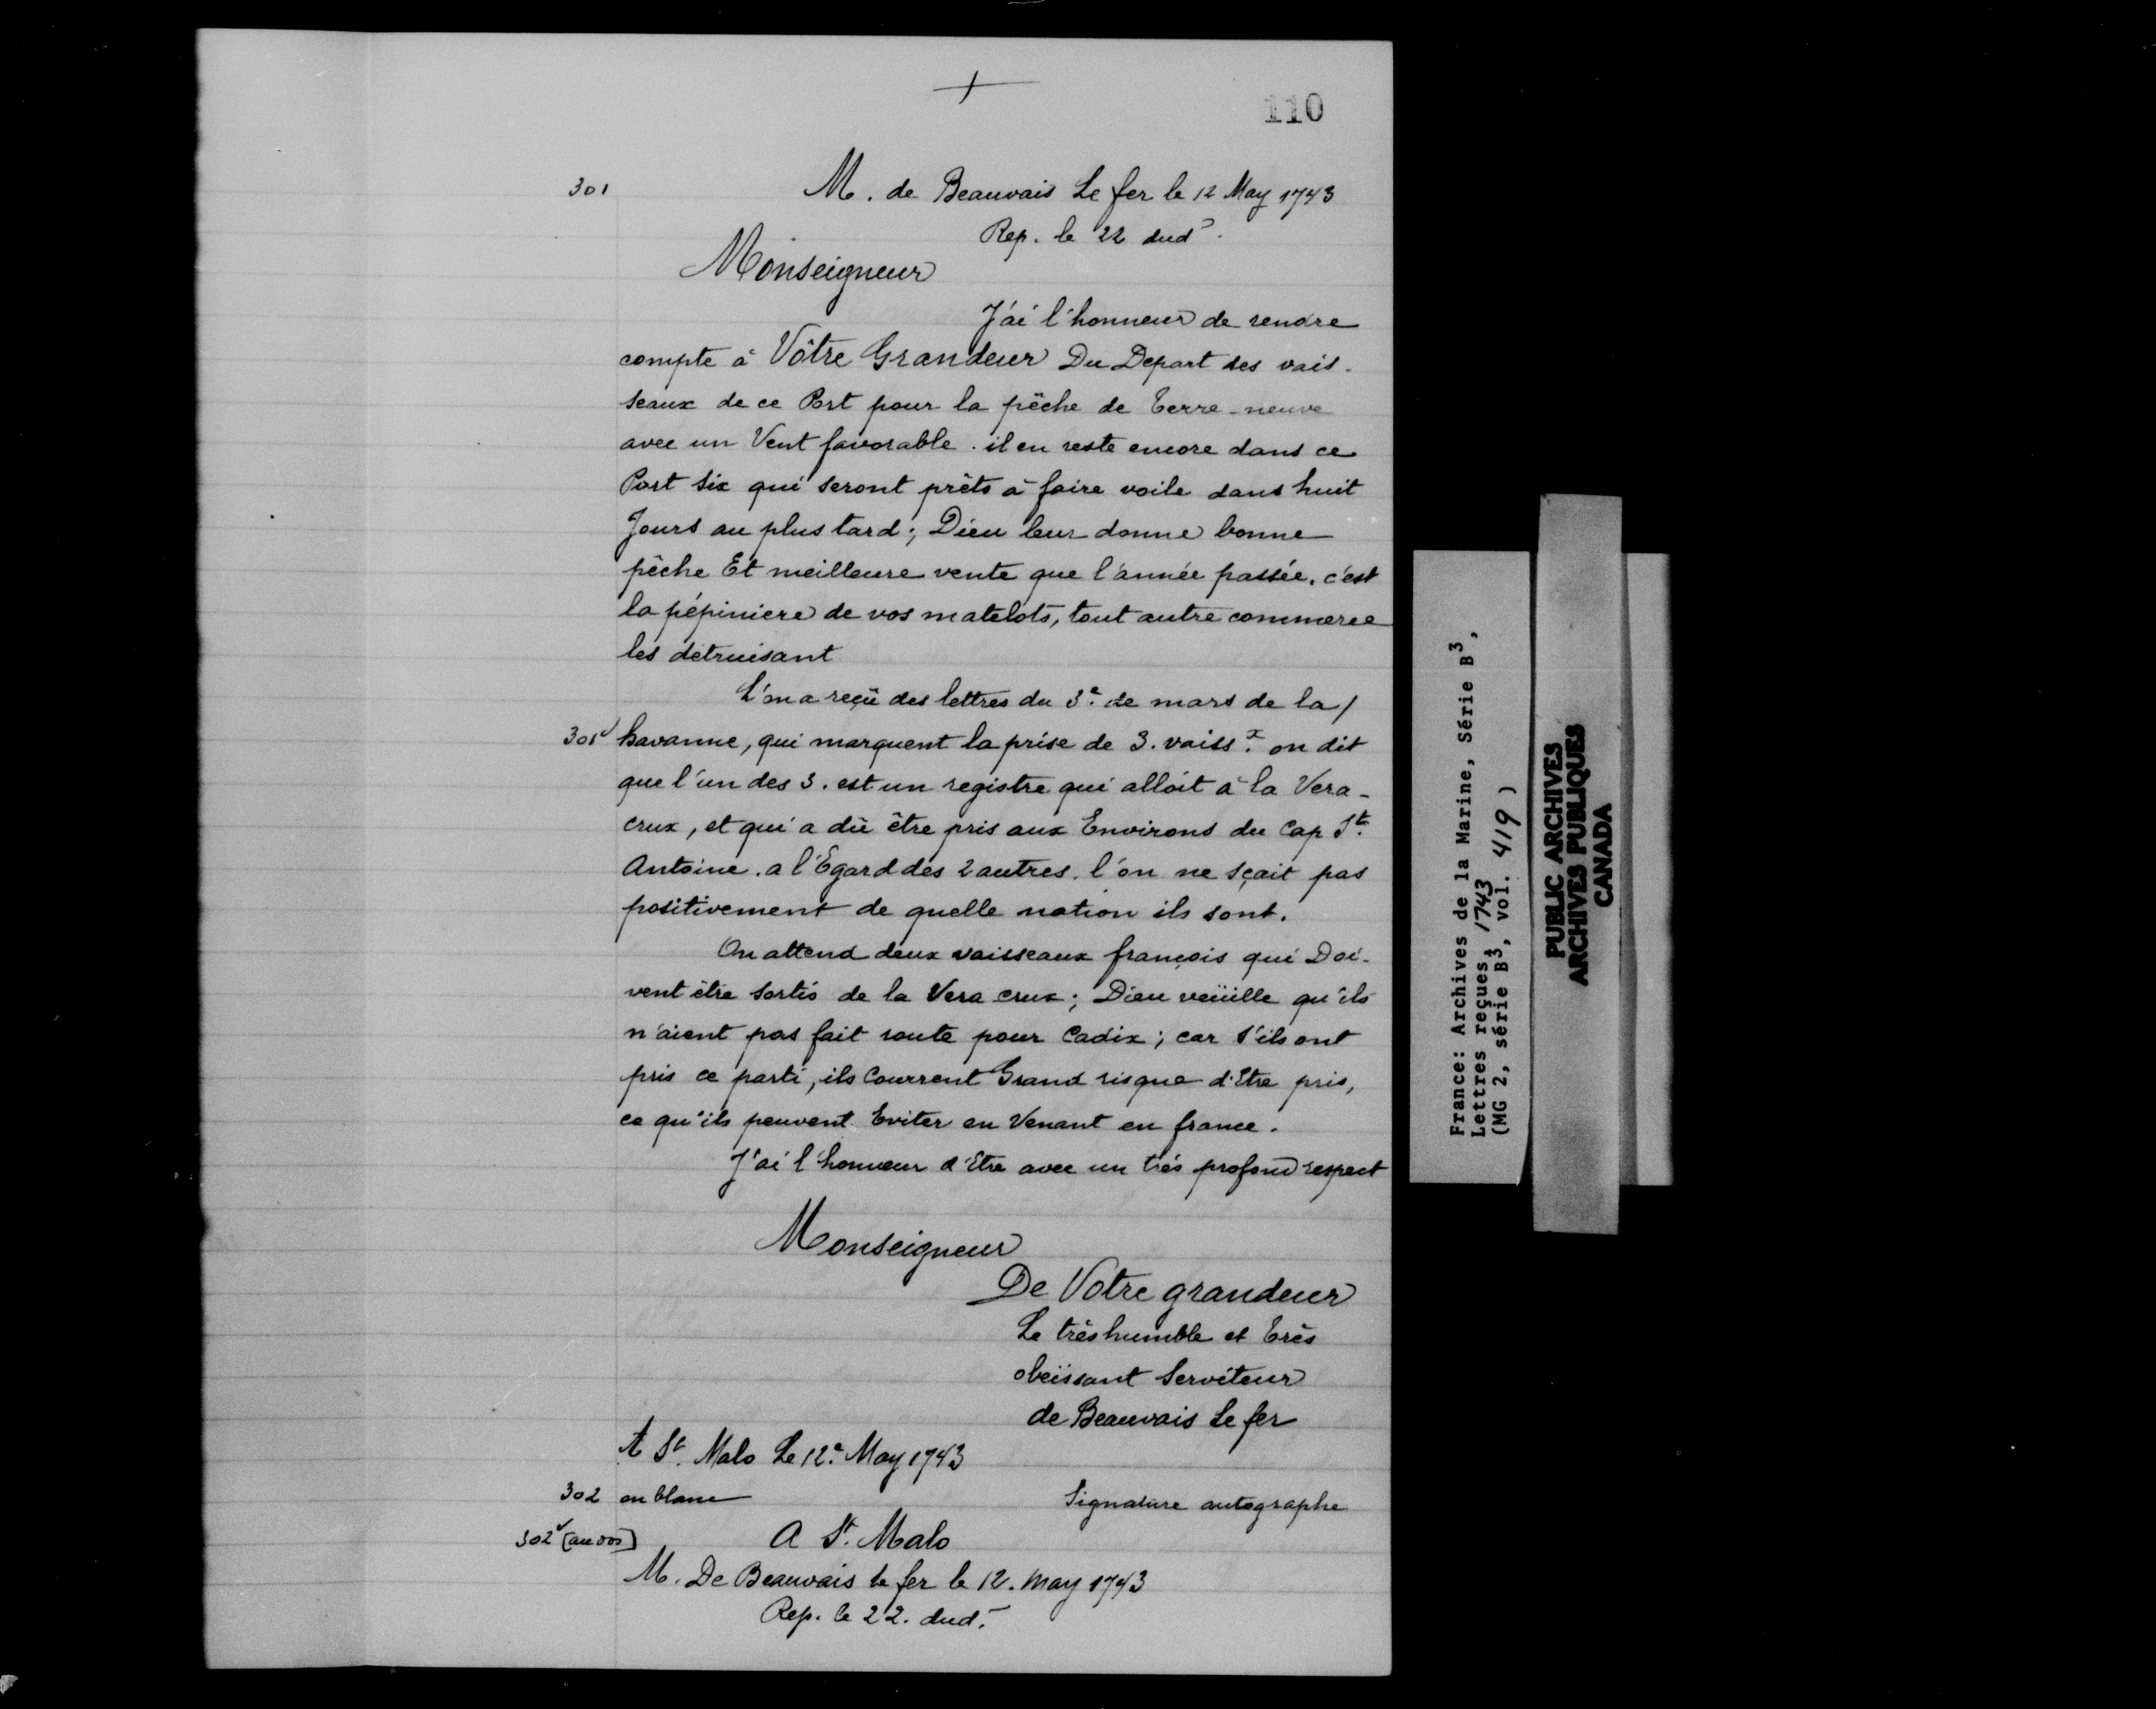 110
301 M. de Beauvais Le fer le 12 May 1743
Rep. le 22 dud.
Monseigneur
J'ai l'honneur de rendre
compte à Vôtre Grandeur Du Depart des vais-
seaux de ce Port pour la pêche de terre-neuve
avec un Vent favorable. il en reste encore dans ce
Port six qui seront prêts à faire voile dans huit
Jours au plus tard; Dieu leur donne bonne
pêche Et meilleure vente que l'année passée. c'est
la pépiniere de vos matelots, tout autre commerce
les détruisant
L'on a reçû des lettres du 3e. de mars de la /
301v havanne, qui marquent la prise de 3. vaissx. on dit
que l'un des 3. est un registre qui alloit à la Vera-
crux, et qui a dû être pris aux Environs du Cap St.
Antoine. a l'Egard des 2 autres. l'on ne sçait pas
positivement de quelle nation ils sont.
On attend deux vaisseaux françois qui Doi-
vent être sortis de la Vera crux; Dieu veüille qu'ils
n'aient pas fait route pour Cadix; car s'ils ont
pris ce parti, ils Courrent Grand risque d'Etre pris,
ce qu'ils peuvent Eviter en Venant en france.
J'ai l'honneur d'Etre avec un très profond respect
Monseigneur
De Votre grandeur
Le très humble et très
obeïssant Serviteur
de Beauvais Le fer
A St. Malo Le 12e. May 1743
302 en blanc Signature autographe
302v [au dos] A St. Malo
M. De Beauvais le fer le 12. may 1743
Rep. le 22. dud.
France: Archives de la Marine, Série B3,
Lettres reçues, 1743
(MG 2, série B3, vol. 419)
PUBLIC ARCHIVES
ARCHIVES PUBLIQUES
CANADA